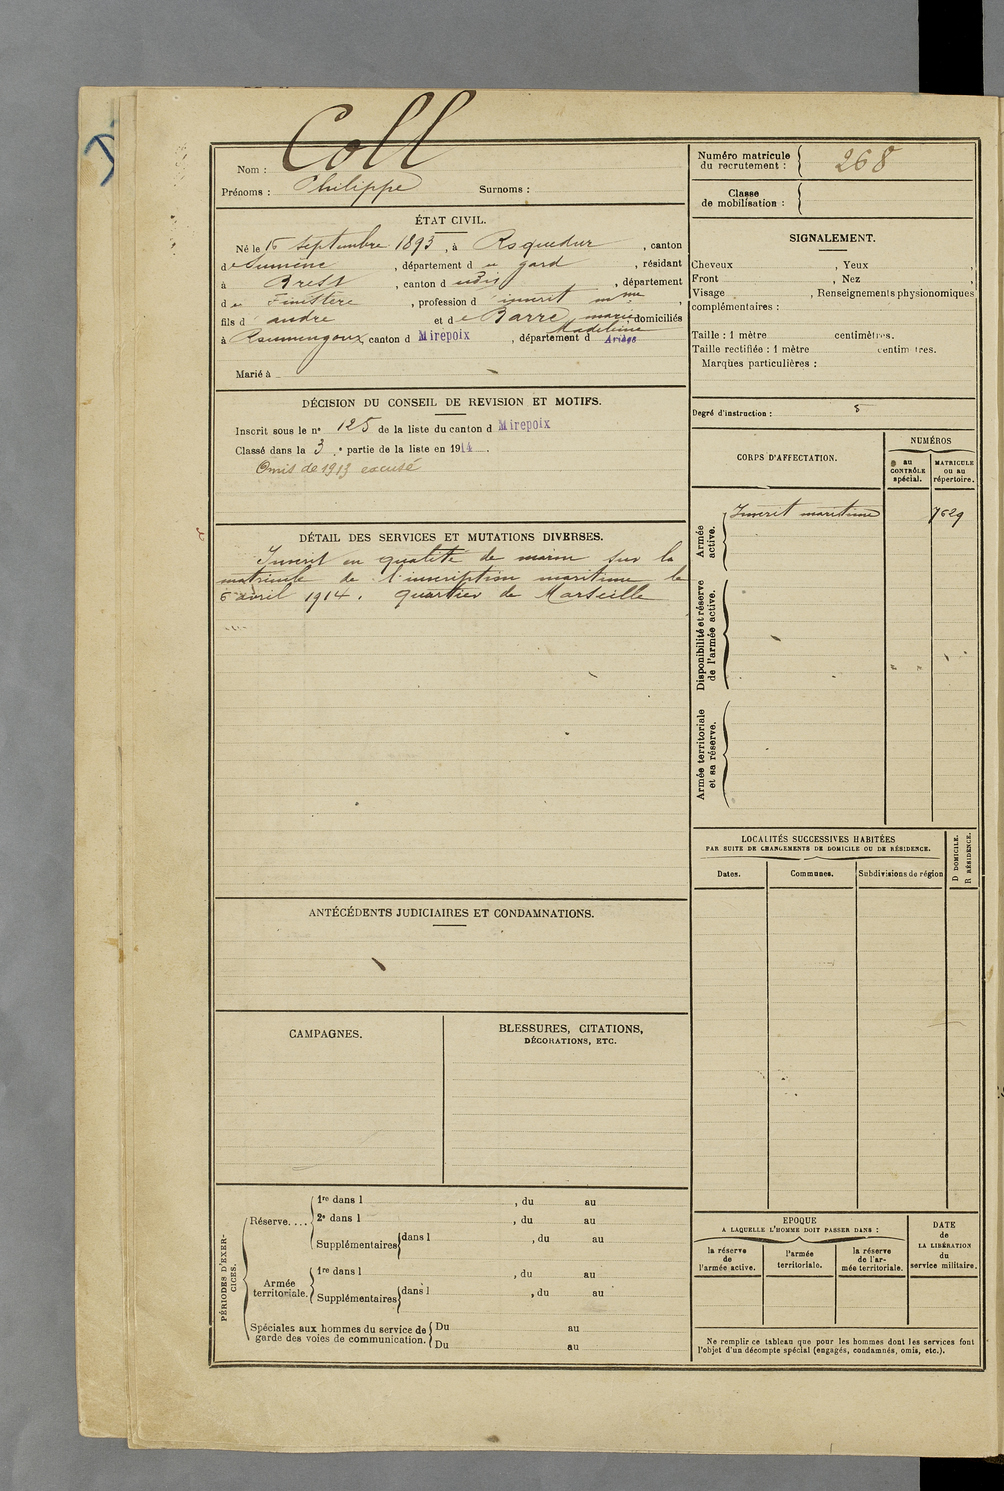 Nom : Coll
Prénoms : Philippe Surnoms :
ÉTAT CIVIL.
Né le 16 septembre 1893, à Roquedur, canton
de Sumène, département du gard, résidant
à Brest, canton d udis, département
de Finistère, profession d inscrit mme,
fils d andre et de Barre marie Madeleine domiciliés
à Roumengoux, canton d Mirepoix, département d Ariège
Marié à
DÉCISION DU CONSEIL DE REVISION ET MOTIFS.
Inscrit sous le n° 125 de la liste du canton d Mirepoix
Classé dans la 3e partie de la liste en 1914.
Omis de 1913 excusé
DÉTAIL DES SERVICES ET MUTATIONS DIVERSES.
Inscrit en qualité de marin sur la
matricule de l'inscription maritime le
6 avril 1914. quartier de Marseille
ANTÉCÉDENTS JUDICIAIRES ET CONDAMNATIONS.
CAMPAGNES.
BLESSURES, CITATIONS,
DÉCORATIONS, ETC.
PÉRIODES D'EXER-
CICES.
Réserve....
1re dans l , du au
2e dans l , du au
Supplémentaires dans l , du au
Armée
territoriale.
1re dans l , du au
Supplémentaires dans l , du au
Spéciales aux hommes du service de
garde des voies de communication.
Du au
Du au
Numéro matricule
du recrutement : 268
Classe
de mobilisation :
SIGNALEMENT.
Cheveux , Yeux ,
Front , Nez ,
Visage , Renseignements physionomiques
complémentaires :
Taille : 1 mètre centimètres.
Taille rectifiée : 1 mètre centimètres.
Marques particulières :
Degré d'instruction : 5
CORPS D'AFFECTATION.
NUMÉROS
au
CONTRÔLE
spécial.
MATRICULE
OU AU
répertoire.
Armée
active.
Inscrit maritime 7629
Disponibilité et réserve
de l'armée active.
Armée territoriale
et sa réserve.
LOCALITÉS SUCCESSIVES HABITÉES
PAR SUITE DE CHANGEMENTS DE DOMICILE OU DE RÉSIDENCE.
D DOMICILE.
R RÉSIDENCE.
Dates. Communes. Subdivisions de région
EPOQUE
A LAQUELLE L'HOMME DOIT PASSER DANS :
la réserve
de
l'armée active.
l'armée
territoriale.
la réserve
de l'ar-
mée territoriale.
DATE
de
LA LIBÉRATION
du
service militaire.
Ne remplir ce tableau que pour les hommes dont les services font
l'objet d'un décompte spécial (engagés, condamnés, omis, etc.).